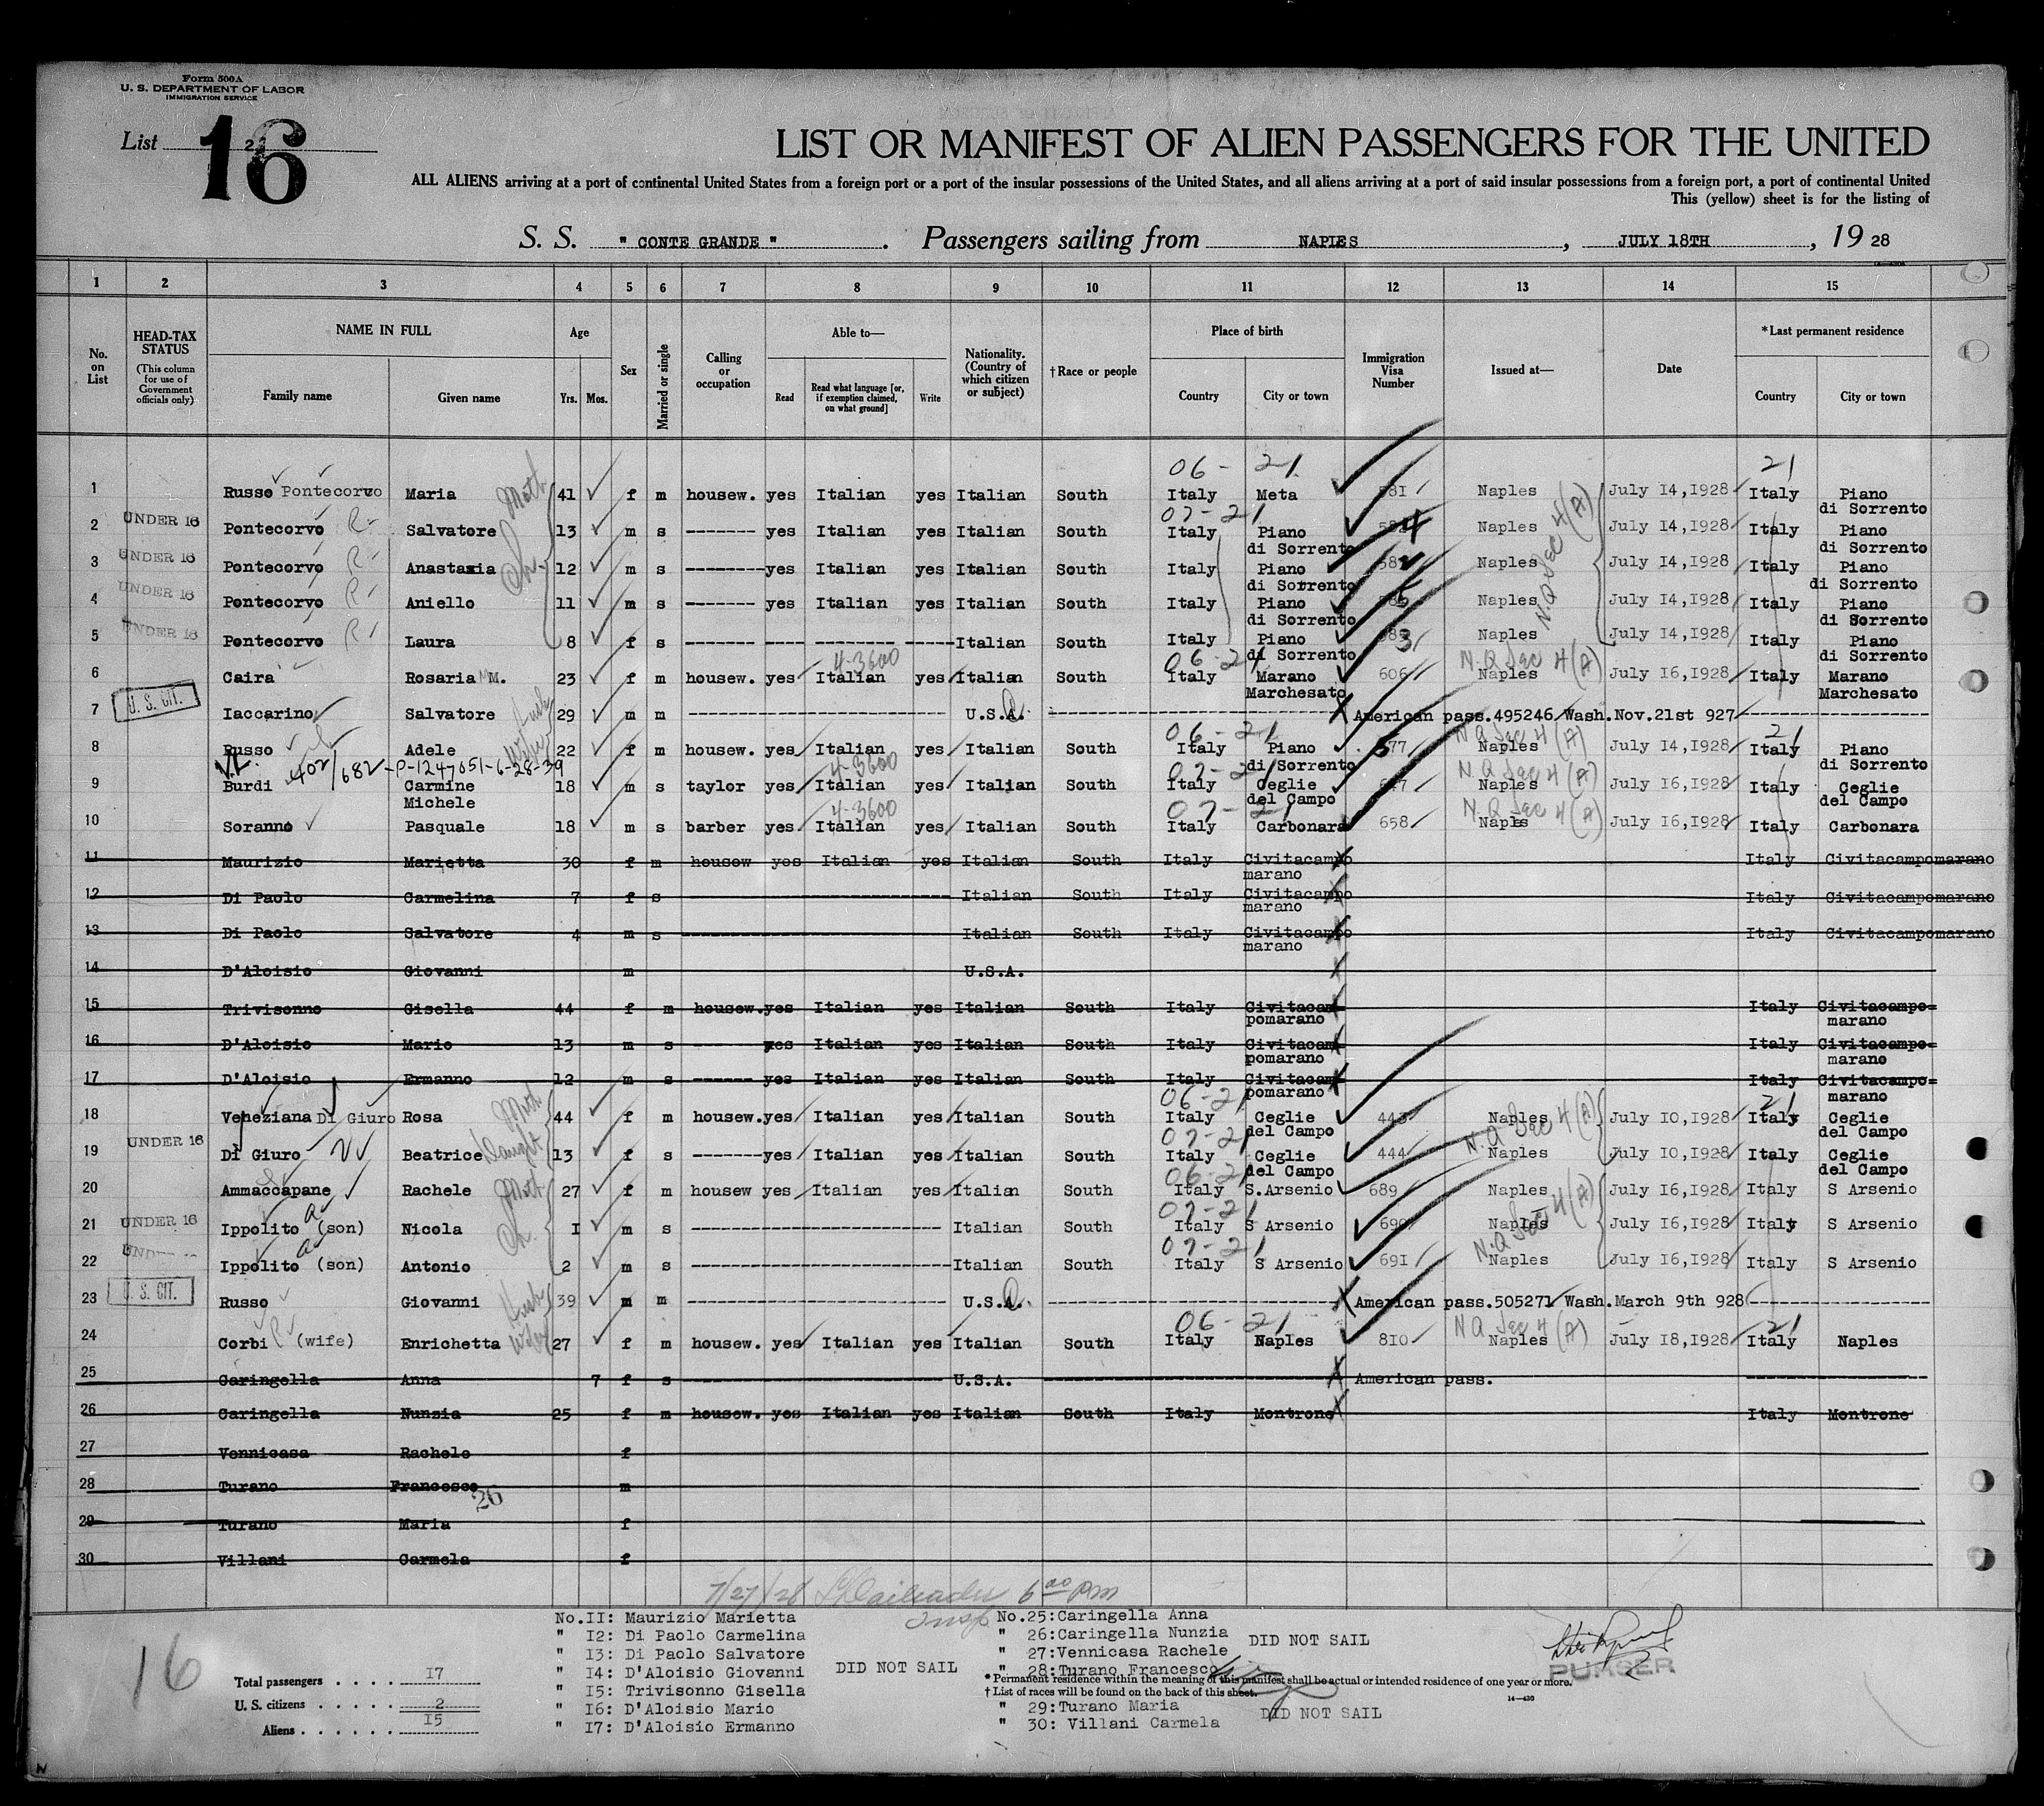 Form 500A
U. S. DEPARTMENT OF LABOR
IMMIGRATION SERVICE
List 16
LIST OR MANIFEST OF ALIEN PASSENGERS FOR THE UNITED
ALL ALIENS arriving at a port of continental United States from a foreign port or a port of the insular possessions of the United States, and all aliens arriving at a port of said insular possessions from a foreign port, a port of continental United
This (yellow) sheet is for the listing of
S. S. " CONTE GRANDE " . Passengers sailing from NAPLES , JULY 18TH , 19 28
1 2 3 4 5 6 7 8 9 10 11 12 13 14 15
No. on List
HEAD-TAX STATUS (This column for use of Government officials only)
NAME IN FULL Family name Given name
Age Yrs. Mos.
Sex
Married or single
Calling or occupation
Able to— Read Read what language [or, if exemption claimed, on what ground] Write
Nationality. (Country of which citizen or subject)
†Race or people
Place of birth Country City or town
Immigration Visa Number
Issued at—
Date
*Last permanent residence Country City or town
06 - 21 21
1 Russo Pontecorvo Maria Moth 41 f m housew. yes Italian yes Italian South Italy Meta 581 Naples July 14,1928 Italy Piano di Sorrento
07-21
2 UNDER 16 Pontecorvo R Salvatore 13 m s ------- yes Italian yes Italian South Italy Piano di Sorrento 4 Naples July 14,1928 Italy Piano di Sorrento
3 UNDER 16 Pontecorvo R Anastasia Ch. 12 m s -------- yes Italian yes Italian South Italy Piano di Sorrento Naples July 14,1928 Italy Piano di Sorrento
4 UNDER 16 Pontecorvo R Aniello 11 m s ------- yes Italian yes Italian South Italy Piano di Sorrento Naples July 14,1928 Italy Piano di Sorrento
5 UNDER 16 Pontecorvo R Laura 8 f s ------- ---- -------- ----- Italian South Italy Piano di Sorrento 3 Naples July 14,1928 Italy Piano di Sorrento
N.Q Sec 4 (A)
4-3600 06-21 N.Q Sec 4 (A)
6 Caira Rosaria M. 23 f m housew. yes Italian yes Italian South Italy Marano Marchesato 606 Naples July 16,1928 Italy Marano Marchesato
7 U. S. CIT. Iaccarino Salvatore Husb 29 m m U.S.A. American pass.495246 Wash.Nov.21st 927
06-21 N Q Sec 4 (A) 21
8 Russo Adele Wife 22 f m housew. yes Italian yes Italian South Italy Piano di Sorrento 577 Naples July 14,1928 Italy Piano di Sorrento
V.L. 402/682-P-1247051-6-28-39 4-3600 07-21 N Q Sec 4 (A)
9 Burdi Carmine Michele 18 m s taylor yes Italian yes Italian South Italy Ceglie del Campo Naples July 16,1928 Italy Ceglie del Campo
4-3600 07-21 N Q Sec 4 (A)
10 Soranno Pasquale 18 m s barber yes Italian yes Italian South Italy Carbonara 658 Naples July 16,1928 Italy Carbonara
11 Maurizio Marietta 30 f m housew yes Italian yes Italian South Italy Civitacampo marano Italy Civitacampomarano
12 Di Paolo Carmelina 7 f s Italian South Italy Civitacampo marano Italy Civitacampomarano
13 Di Paolo Salvatore 4 m s Italian South Italy Civitacampo marano Italy Civitacampomarano
14 D'Aloisio Giovanni m U.S.A.
15 Trivisonno Gisella 44 f m housew. yes Italian yes Italian South Italy Civitacam pomarano Italy Civitacampo= marano
16 D'Aloisio Mario 13 m s ------ yes Italian yes Italian South Italy Civitacam pomarano Italy Civitacampo= marano
17 D'Aloisio Ermanno 12 m s ------ yes Italian yes Italian South Italy Civitacam pomarano Italy Civitacampo= marano
06-21 21
18 Veneziana Di Giuro Rosa Moth 44 f m housew. yes Italian yes Italian South Italy Ceglie del Campo 443 Naples July 10,1928 Italy Ceglie del Campo
07-21 N.Q Sec 4 (A)
19 UNDER 16 Di Giuro Beatrice Daught 13 f s ------- yes Italian yes Italian South Italy Ceglie del Campo 444 Naples July 10,1928 Italy Ceglie del Campo
06-21
20 Ammaccapane Rachele Moth 27 f m housew yes Italian yes Italian South Italy S.Arsenio 689 Naples July 16,1928 Italy S Arsenio
07-21 N.Q Sec 4 (A)
21 UNDER 16 Ippolito (son) Nicola Ch. I m s Italian South Italy S Arsenio 690 Naples July 16,1928 Italy S Arsenio
07-21
22 UNDER Ippolito (son) Antonio 2 m s Italian South Italy S Arsenio 691 Naples July 16,1928 Italy S Arsenio
23 U. S. CIT. Russo Giovanni Husb 39 m m U.S.A. American pass.505271 Wash.March 9th 928
06-21 N Q Sec 4 (A) 21
24 Corbi R (wife) Enrichetta Wife 27 f m housew. yes Italian yes Italian South Italy Naples 810 Naples July 18,1928 Italy Naples
25 Caringella Anna 7 f s U.S.A. American pass.
26 Caringella Nunzia 25 f m housew. yes Italian yes Italian South Italy Montrone Italy Montrone
27 Vennicasa Rachele f
28 Turano Francesco m
26
29 Turano Maria f
30 Villani Carmela f
7/27/28 6 00 PM
Insp
No.II: Maurizio Marietta
" I2: Di Paolo Carmelina
" I3: Di Paolo Salvatore
" I4: D'Aloisio Giovanni DID NOT SAIL
" I5: Trivisonno Gisella
" I6: D'Aloisio Mario
" I7: D'Aloisio Ermanno
No.25:Caringella Anna
" 26:Caringella Nunzia DID NOT SAIL
" 27:Vennicasa Rachele
" 28:Turano Francesco
* Permanent residence within the meaning of this manifest shall be actual or intended residence of one year or more.
† List of races will be found on the back of this sheet.
14—430
" 29:Turano Maria
" 30: Villani Carmela DID NOT SAIL
PURSER
16
Total passengers . . . . I7
U. S. citizens . . . . . 2
Aliens . . . . . . I5